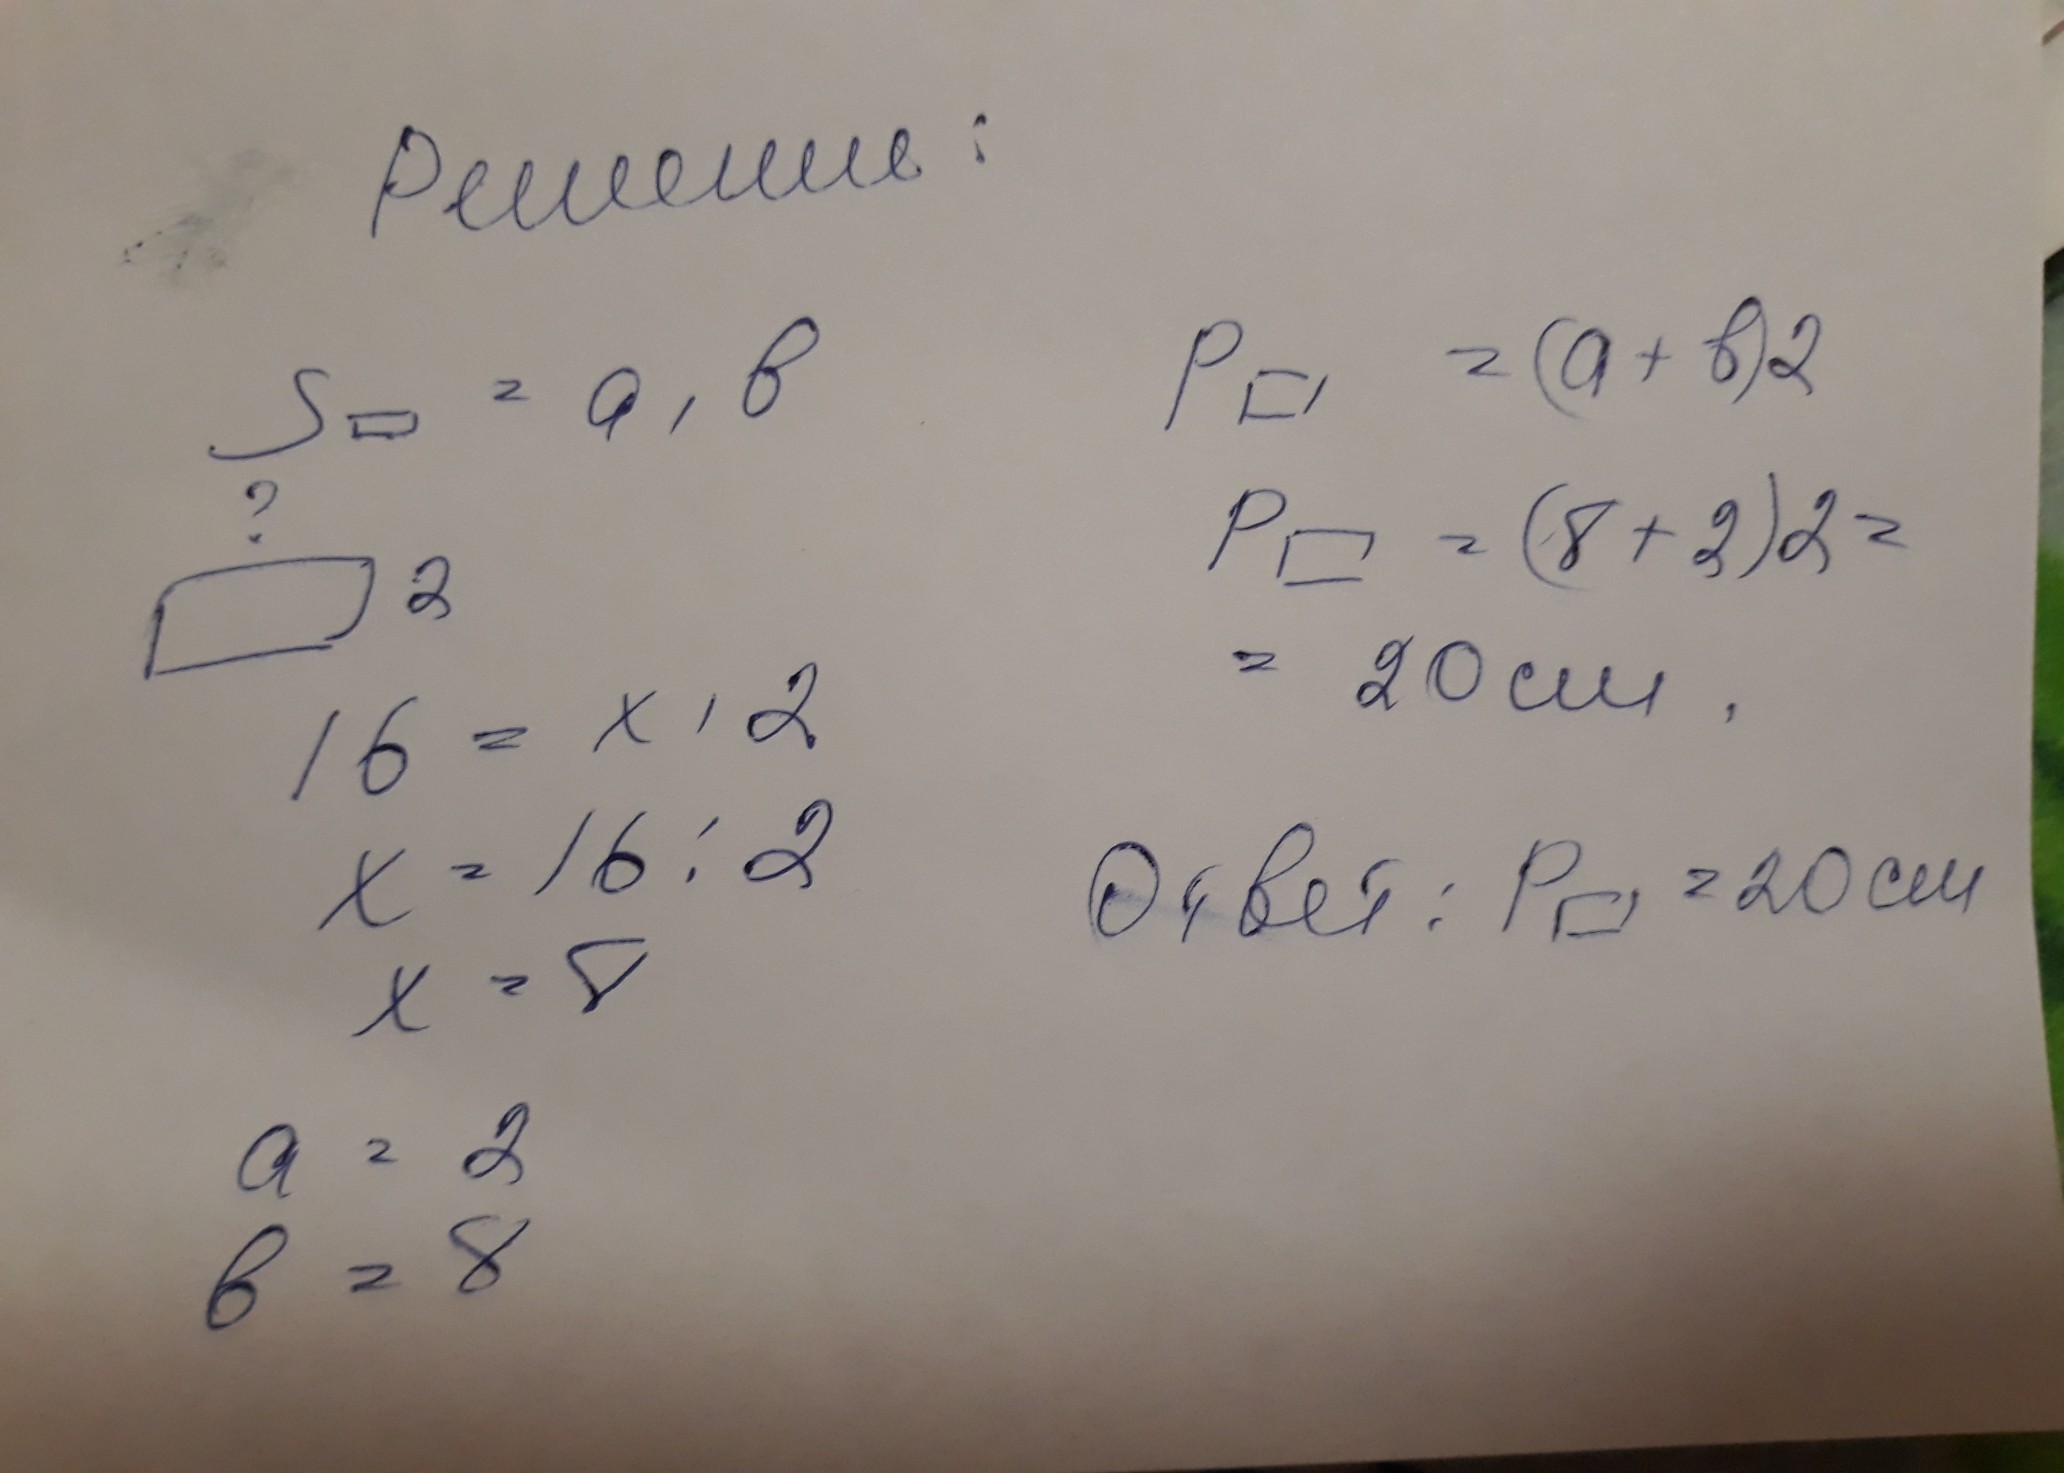 Решение:
S▭ = a · b
?
2
16 = x · 2
x = 16 : 2
x = 8
a = 2
b = 8
P▭ = (a + b)2
P▭ = (8 + 2)2 =
= 20 см.
Ответ: P▭ = 20 см